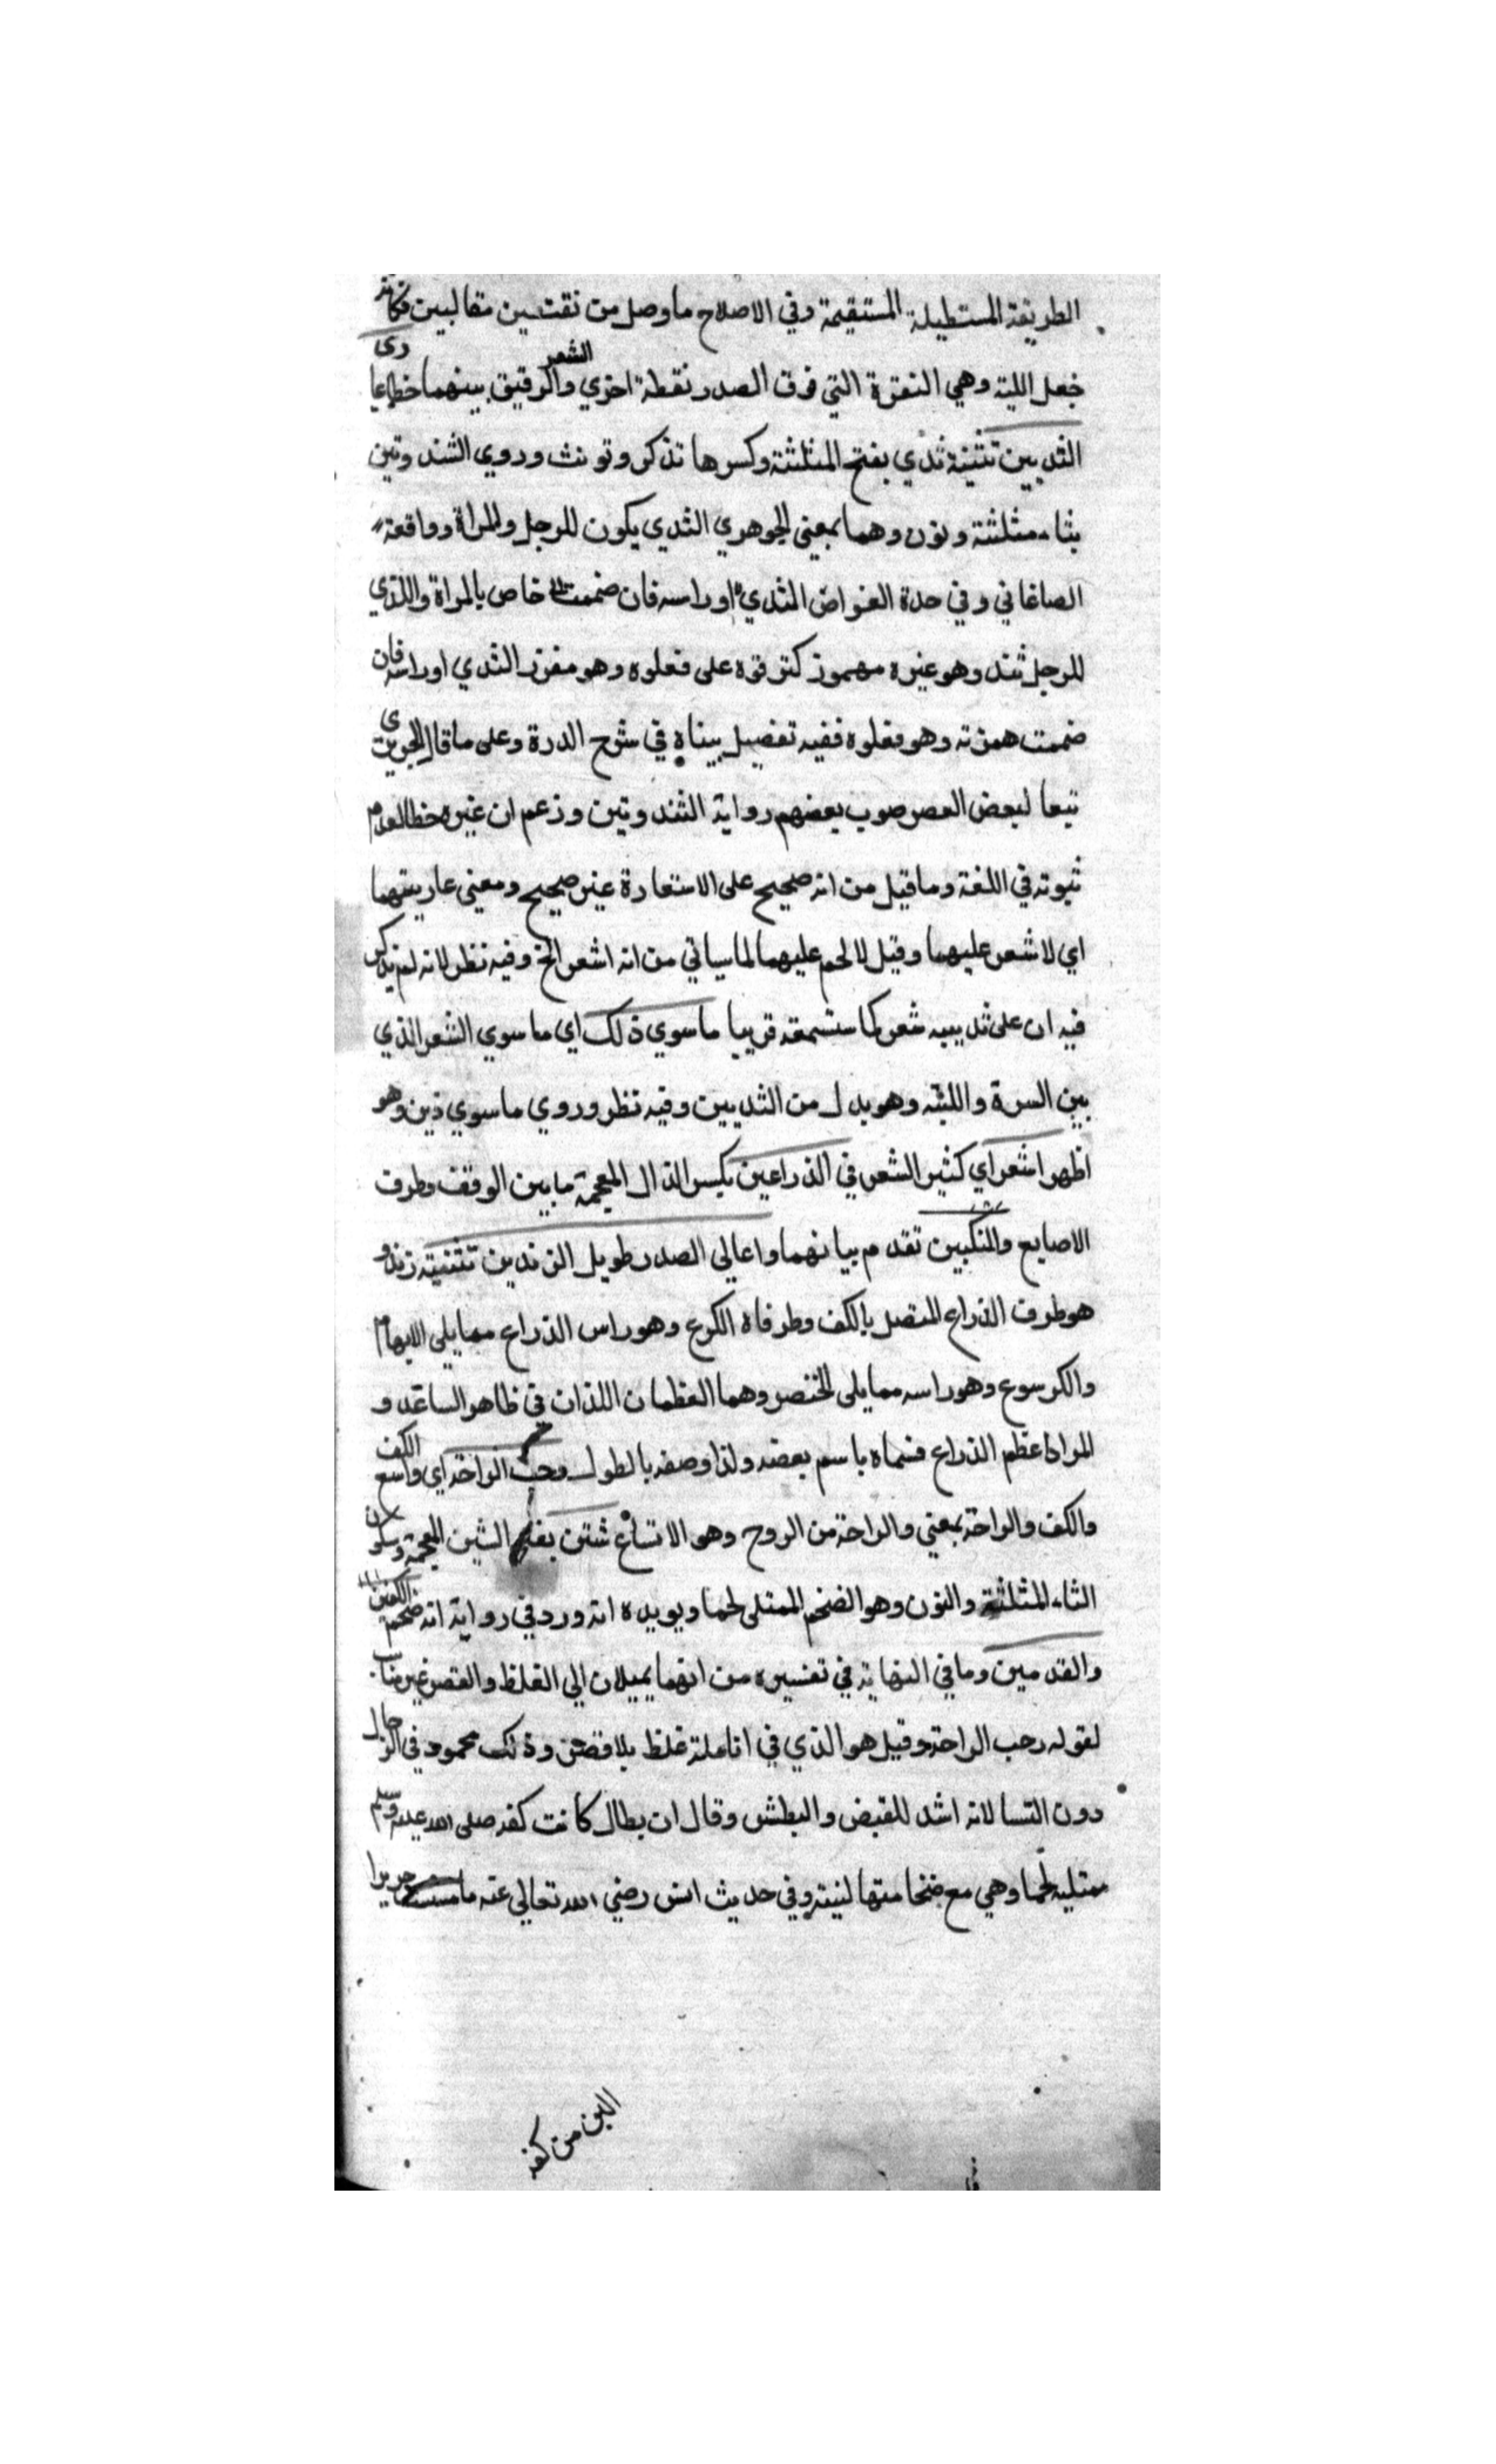 الطريقة المستطيلة المستقيمة وفي الاصلاح ماوصل من نقتسين متقالبين فكانه
جعل اللبة وهي النقرة التي فوق الصدر نقطة اخري والشعر الرقيق بينهما خطا عاري
الثديين تثنية ثدي بفتح المثلثة وكسرها تذكر وتونث وروي الثندوتين
بثاء مثلثة ونون وهما بمعني الجوهري الثدي يكون للرجل والمراة ووافقه
الصاغاني وفي حدة الغواص الثدي اوراسه فان ضممت خاص بالمراة والذي
للرجل ثند وهو غيره مهموز كترقوة على فعلوه وهو مغرز الثدي اوراسه فان
ضممت همزته وهو فعلوه ففيه تفصيل بيناه في شرح الدرة وعلى ما قال الحريري
تبعا لبعض العصر صوب بعضهم رواية الثندوتين وزعم ان غيره خطا لعدم
ثبوته في اللغة وما قيل من انه صحيح على الاستعارة غير صحيح ومعني عاريتهما
اي لا شعر عليهما وقيل لا لحم عليهما لما سياتي من انه اشعر الخ وفيه نظر لانه لم يذكر
فيه ان على ثدييه شعر كما ستسمعه قريبا ما سوي ذلك اي ما سوي الشعر الذي
بين السرة واللبة وهو بدل من الثديين وفيه نظر وروي ما سوي ذين وهو
اظهر اشعر اي كثير الشعر في الذراعين بكسر الذال المعجمة ما بين الوقف وطرف
الاصابع والمنكبين تقدم بيانهما واعالي الصدر طويل الزندين تثنية زند و
هو طرف الذراع المتصل بالكف وطرفاه الكوع وهو راس الذراع مما يلي الابهام
والكرسوع وهو راسه مما يلي الخنصر وهما العظمان اللذان في ظاهر الساعد و
المراد عظم الذراع فسماه باسم بعضه ولذا وصفه بالطول رحب الراحة اي واسع الكف
والكف والراحة بمعني والراحة من الروح وهو الاتساع شثن بفتح الشين المعجمة وسكون
الثاء المثلثة والنون وهو الضخم الممتلي لحما ويويده انه ورد في رواية انه ضخم الكفين
والقدمين وما في النهاية في تفسيره من انهما يميلان الي الغلظ والقصر غير مناسب
لقوله رحب الراحة وقيل هو الذي في انامله غلظ بلا قصر وذلك محمود في الرجال
دون النسا لانه اشد للقبض والبطش وقال ان بطال كانت كفه صلى الله عليه وسلم
ممتليه لحما وهي مع ضخامتها لينة وفي حديث انس رضي الله تعالي عنه ما مسست حريرا
الين من كفه